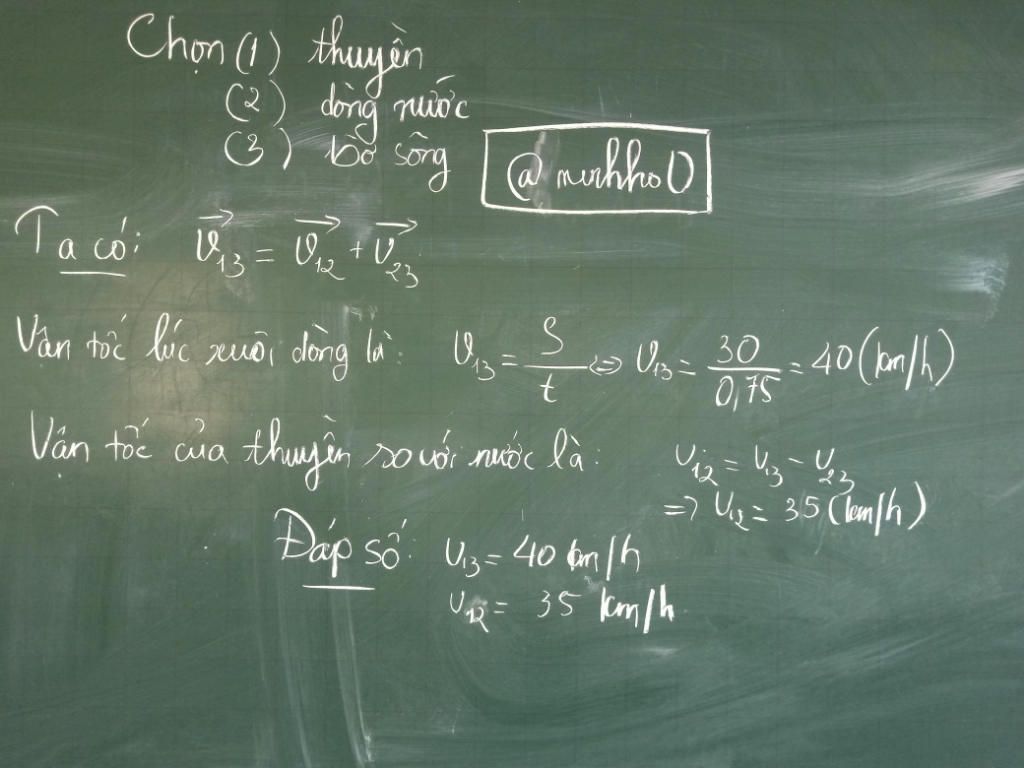 Chọn (1) thuyền
(2) dòng nước
(3) bờ sông
@minhho0
Ta có: v₁₃ = v₁₂ + v₂₃
Vận tốc lúc xuôi dòng là: v₁₃ = S/t ⇔ v₁₃ = 30/0,75 = 40 (km/h)
Vận tốc của thuyền so với nước là: v₁₂ = v₁₃ - v₂₃
=> v₁₂ = 35 (km/h)
Đáp số: v₁₃ = 40 km/h
v₁₂ = 35 km/h